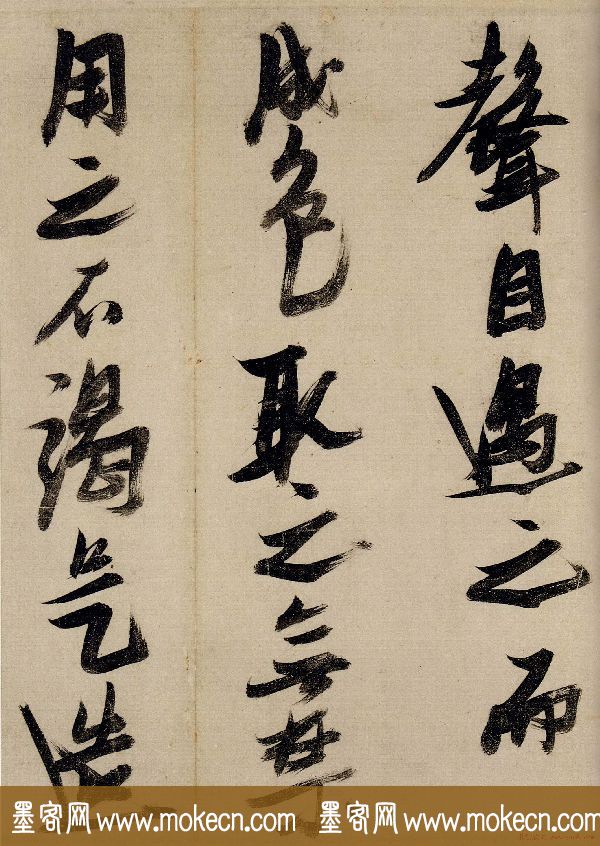 聲目遇之而
成色取之無禁
用之不竭是造
墨客网 www.mokecn.com 墨客网 www.mokecn.com